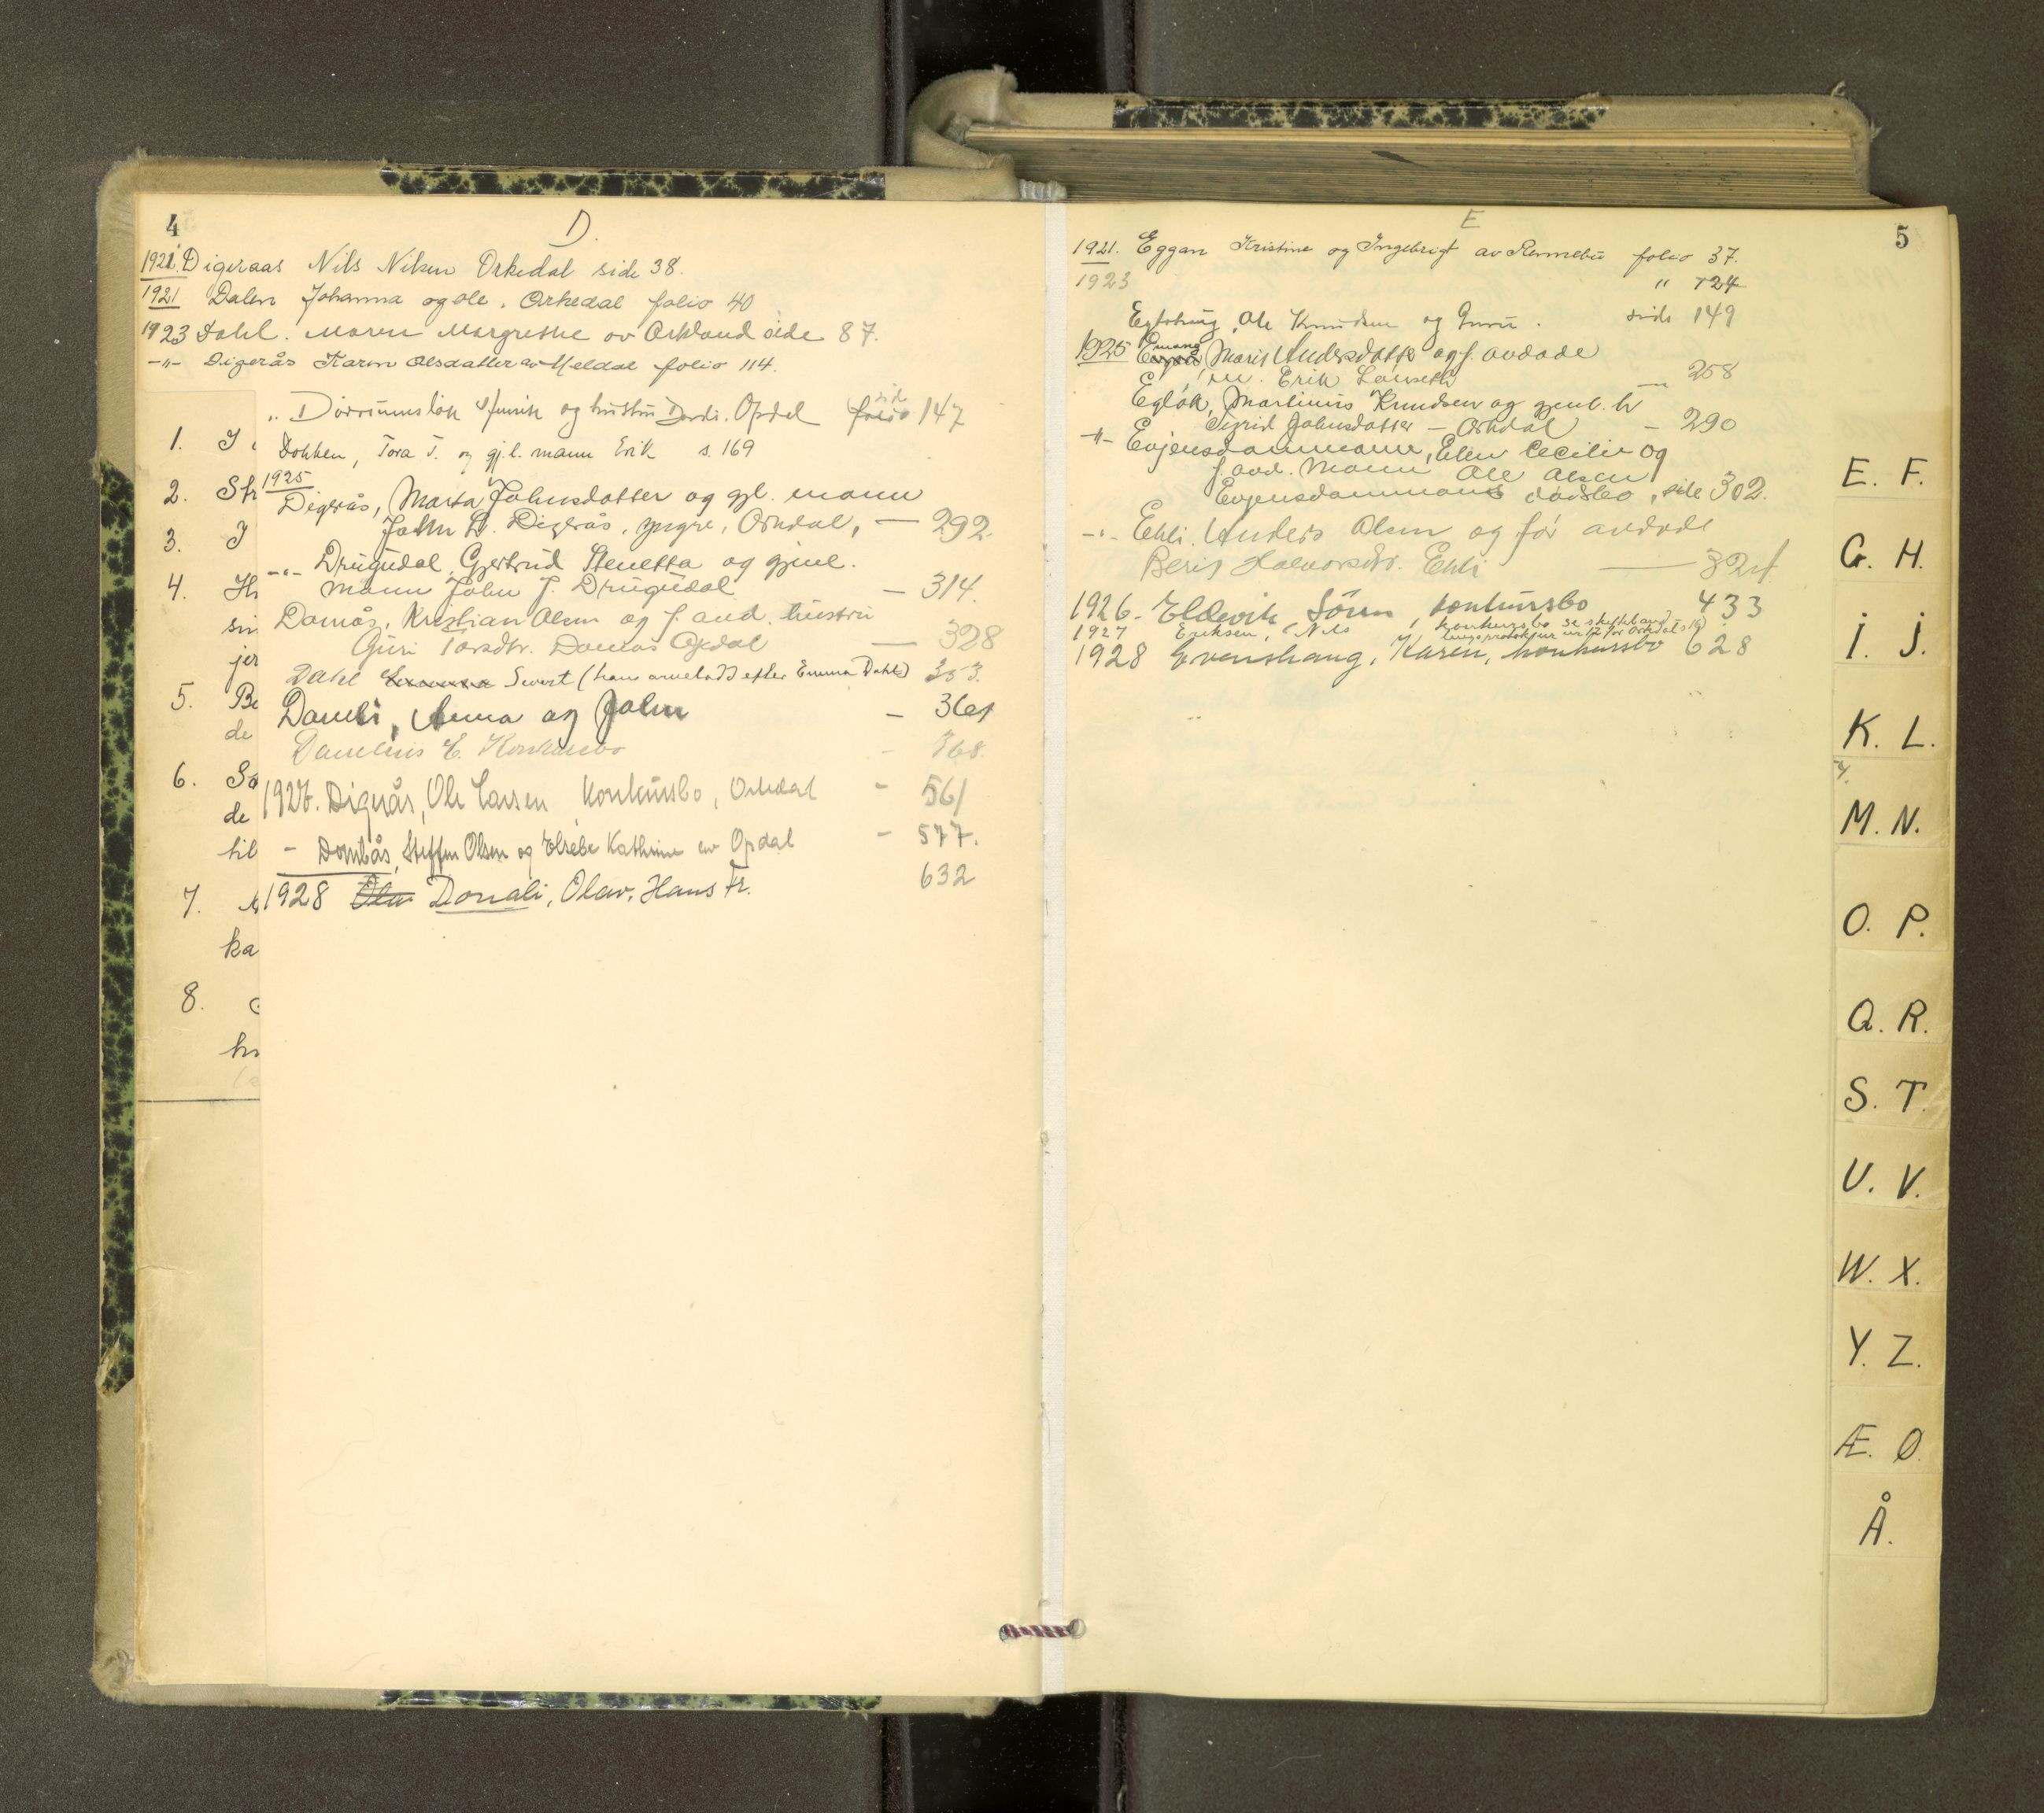 4
D.
1921. Digeraas Nils Nilsen Orkedal side 38.
1921 Dalen Johanna og Ole. Orkedal folio 40
1923 Dahl. Maren Margrethe av Orkland side 87.
-"- Digerås Karen Olsdatter av Meldal folio 114.
" og hustru Opdal folio side 147
1. I
Dokken, Tora T. og gj.l. mann Erik s. 169
1925
2. Sk
Digerås, Marta Johnsdatter og gjl. mann
John L. Digerås, yngre, Orkdal, — 292.
3. I
-"- Drugudal, Gjertrud Stenetta og gjenl.
4. H
mann John J. Drugudal — 314.
sin
Domås, Kristian Olsen og f. avd. hustru
Guri Torsdtr. Domås Opdal — 328
jer
Dahl Sivert (hans arvelodd efter Emma Dahl) 353.
5. Be
Damli, Anna og John — 361
de
E. Konkursbo - 368.
6. Sø
1927. Digerås, Ole Larsen Konkursbo, Orkdal - 561
de
til
- Dombås, Steffen Olsen og Elsebe Kathrine av Opdal - 577.
7.
1928 Ola Donali, Olav, Hans Fr. 632
ka
8.
5
E
1921. Eggan Kristine og Ingebrigt av Rennebu folio 37.
1923 " 124
Ole Knudsen og Guru. side 149
1925 Marit Andersdatter og f. avdøde
Erik Larseth — 258
Egløk, Martinus Knudsen og gjenl. h
Sigrid Johnsdatter - Orkdal - 290
-"- Evjensdammann, Elen Cecilie og
f. avd. Mann Ole Olsen
Evjensdammens dødsbo, side 302.
-"- Ekli, Anders Olsen og før avdøde
Berit Halvorsdtr. Ekli — 321
1926. Eldevik, Sören, konkursbo 433
1927 Eriksen, Nils konkursbo se skiftebehand
lingsprotokoll nr 12 for Orkdal s 16
1928 Evenshaug, Karen, konkursbo 628
E. F.
G. H.
I. J.
K. L.
M. N.
O. P.
Q. R.
S. T.
U. V.
W. X.
Y. Z.
Æ. Ø.
Å.